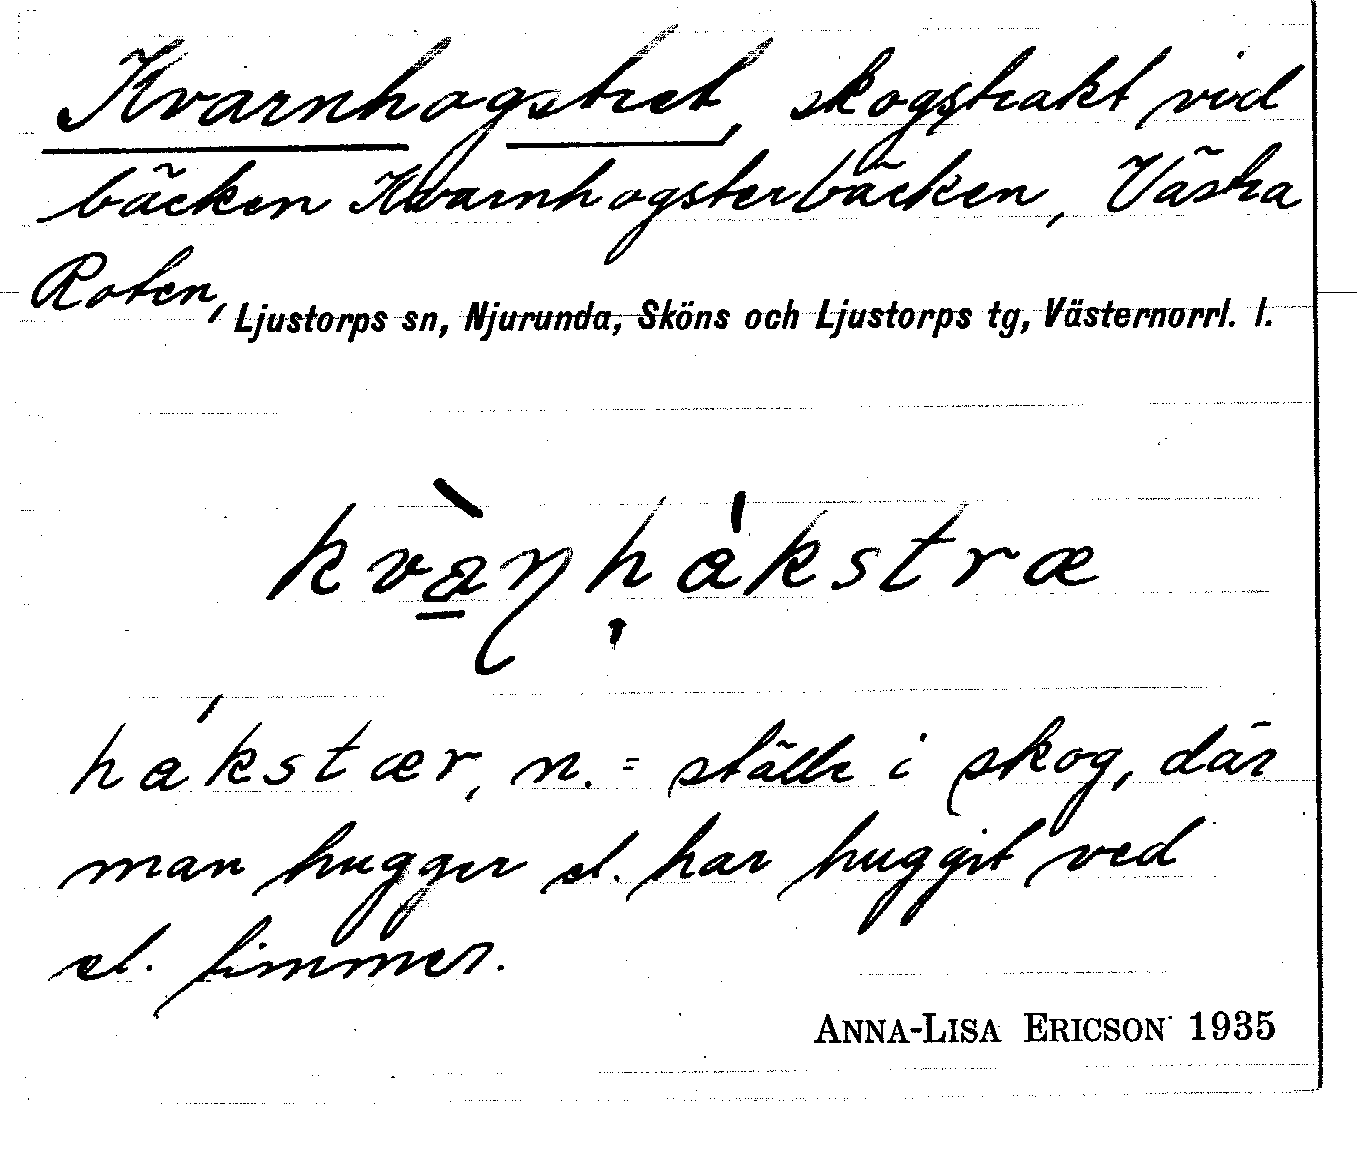 Kvarnhogstret, skogstrakt vid
bäcken Kvarnhogsterbäcken, Västra
Roten, Ljustorps sn, Njurunda, Sköns och Ljustorps tg, Västernorrl. l.
kvàṉhákstræ
hákstær, n. = ställe i skog, där
man hugger el. har huggit ved
el. timmer.
ANNA-LISA ERICSON 1935